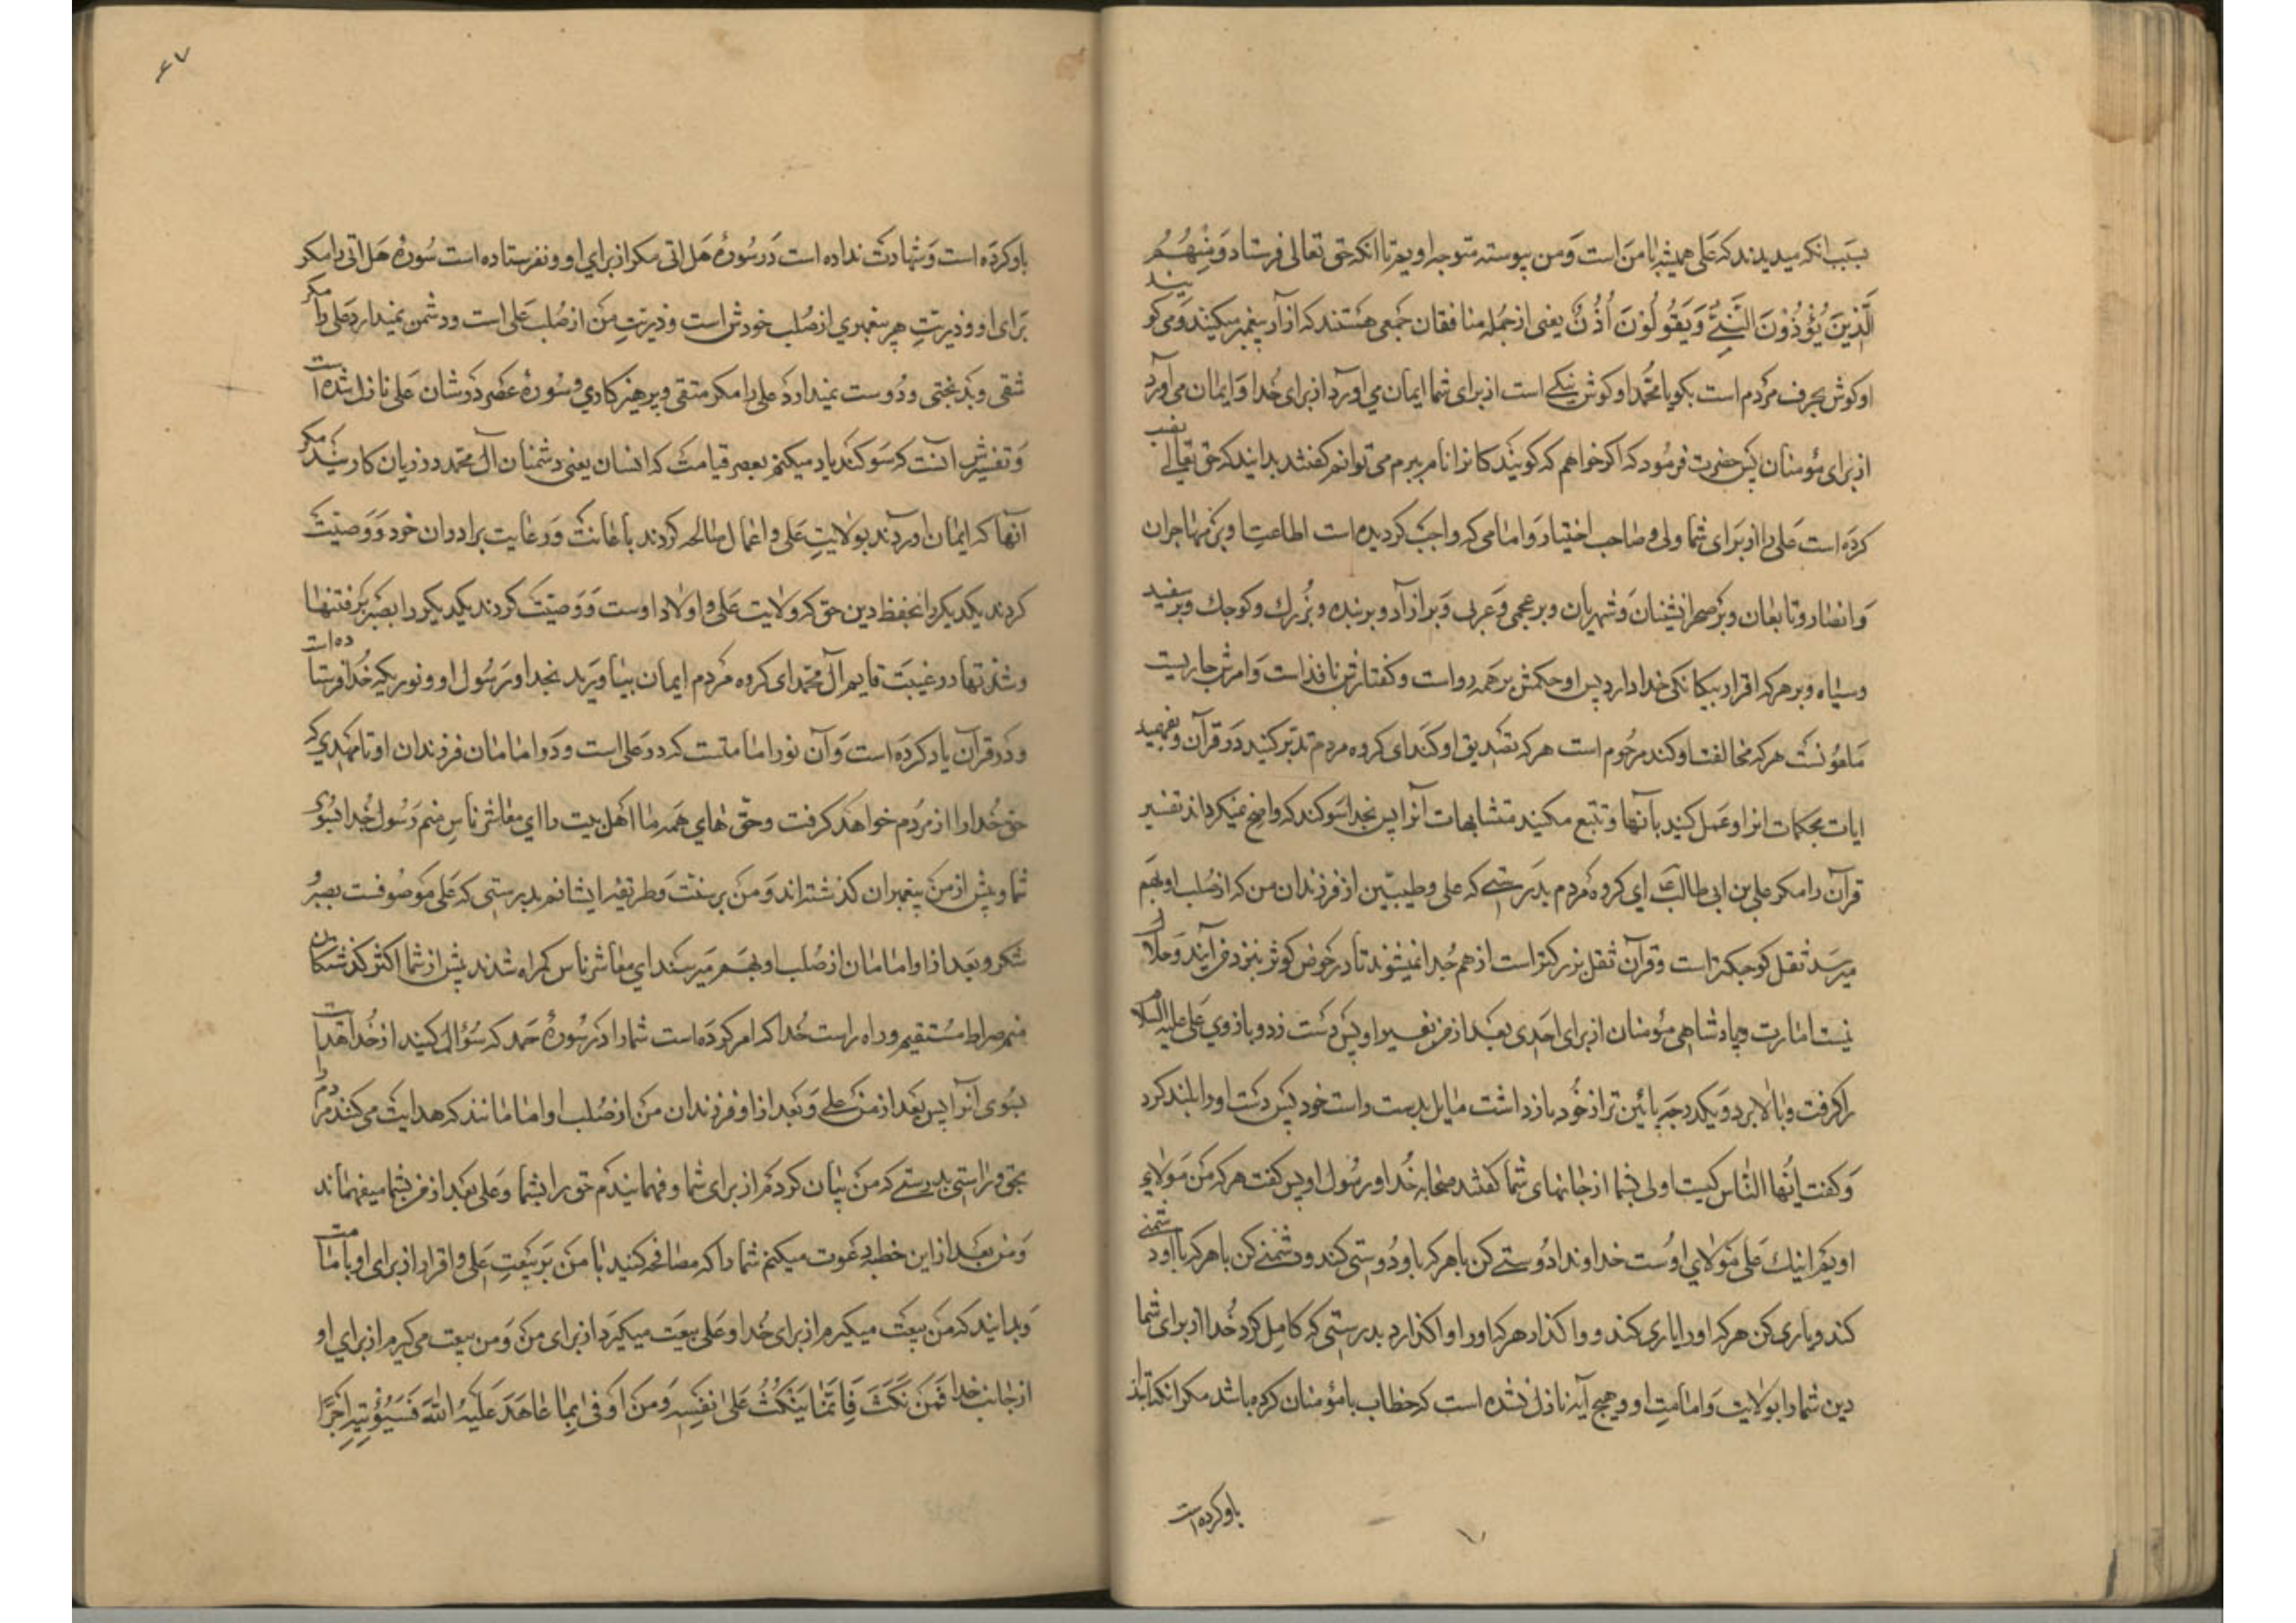 بسبب انکه میدیدند که علی همیشه با من است و من پیوسته متوجه اویم تا انکه حق تعالی فرستاد و منهم
الذین یؤذون النبی و یقولون اذن یعنی از جمله منافقان جمعی هستند که ازار پیغمبر میکنند و می کویند
او کوش بحرف مردم است بکو یا محمد او کوش نیکی است از برای شما ایمان می اورد از برای خدا و ایمان می آورد
از برای مؤمنان پس حضرت فرمود که اکر خواهم که کویندکانرا نام ببرم می توانم کفت بدانید که حق تعالی نصب
کرده است علی را از برای شما ولی و صاحب اختیار و امامی که واجب کردیده است اطاعت او بر مهاجران
و انصار و تابعان و بر صحرانشینان و شهریان و بر عجمی و عربی و بر ازاد و بر بنده و بزرك و کوچك و بر سفید
و سیاه و بر هر که اقرار بیکانکی خدا دارد پس او حکمش بر همه روا است و کفتارش نافذ است و امرش جاریست
ملعونست هر که مخالفت او کند مرحوم است هر که تصدیق او کند ای کروه مردم تدبر کنید در قرآن و بفهمید
ایات محکمات انرا و عمل کنید بآنها و تتبع مکنید متشابهات آنرا پس بخدا سوکند که واضح نمیکرداند تفسیر
قرآن را مکر علی بن ابی طالب ای کروه مردم بدرستی که علی و طیبین از فرزندان من که از صلب او بهم
میرسد ثقل کوچکتر است و قرآن ثقل بزرکتر است از هم جدا نمیشوند تا در حوض کوثر بنزد من آیند و حلال
نیست امارت و پادشاهی مؤمنان از برای احدی بعد از من بغیر او پس دست زد و بازوی علی علیه السلام
را کرفت و بالا برد و یکدرجه پائین تر از خود باز داشت مایل بدست راست خود پس دست او را بلند کرد
و کفت ایها الناس کیست اولی بشما از جانهای شما کفتند صحابه خدا و رسول او پس کفت هر که من مولای
اویم اینك علی مولای اوست خداوندا دوستی کن با هر که با او دوستی کند و دشمنی کن با هر که با او دشمنی
کند و یاری کن هر که او را یاری کند و واکذار هر که او را واکذارد بدرستی که کامل کرد خدا از برای شما
دین شما را بولایت و امامت او و هیچ آیه نازل نشده است که خطاب با مؤمنان کرده باشد مکر انکه ابتدا
باو کرده است
۴۷
باو کرده است و شهادت نداده است در سوره هل اتی مکر از برای او و نفرستاده است سوره هل اتی را مکر
برای او و ذریت هر پیغمبری از صلب خودش است و ذریت من از صلب علی است و دشمن نمیدارد علی را مکر
شقی و بدبختی و دوست نمیدارد علی را مکر متقی و پرهیزکاری و سوره عصر در شان علی نازل شده است
و تفسیرش آنست که سوکند یاد میکنم بعصر قیامت که انسان یعنی دشمنان آل محمد در زیان کارند مکر
آنها که ایمان اوردند بولایت علی و اعمال صالحه کردند باعانت و رعایت برادران خود و وصیت
کردند یکدیکر را بحفظ دین حق که ولایت علی و اولاد اوست و وصیت کردند یکدیکر را بصبر بر فتنها
و شدتها در غیبت قایم آل محمد ای کروه مردم ایمان بیاورید بخدا و رسول او و نوریکه خدا فرستاده است
و در قرآن یاد کرده است و آن نور امامتست که در علی است و در امامان فرزندان او تا مهدی که
حق خدا را از مردم خواهد کرفت و حق های همه ما اهل بیت را ای معاشر ناس منم رسول خدا بسوی
شما و پیش از من پیغمبران کذشته اند و من بر سنت و طریقه ایشانم بدرستی که علی موصوفست بصبر و
شکر و بعد از او امامان از صلب او بهم میرسند ای معاشر ناس کمراه شدند پیش از شما اکثر کذشتکان
منم صراط مستقیم و راه راست خدا که امر کرده است شما را در سوره حمد که سؤال کنید از خدا هدایت
بسوی آنرا پس بعد از من علی و بعد از او فرزندان من از صلب او امامانند که هدایت می کنند مردم را
بحق و براستی بدرستی که من بیان کردم از برای شما و فهمانیدم حق را بشما و علی بعد از من بشما میفهماند
و من بعد از این خطبه دعوت میکنم شما را که مصافحه کنید با من بر بیعت علی و اقرار از برای او بامامت
و بدانید که من بیعت میکیرم از برای خدا و علی بیعت میکیرد از برای من و من بیعت می کیرم از برای او
از جانب خدا فمن نکث فانما ینکث علی نفسه و من اوفی بما عاهد علیه الله فسیؤتیه اجرا